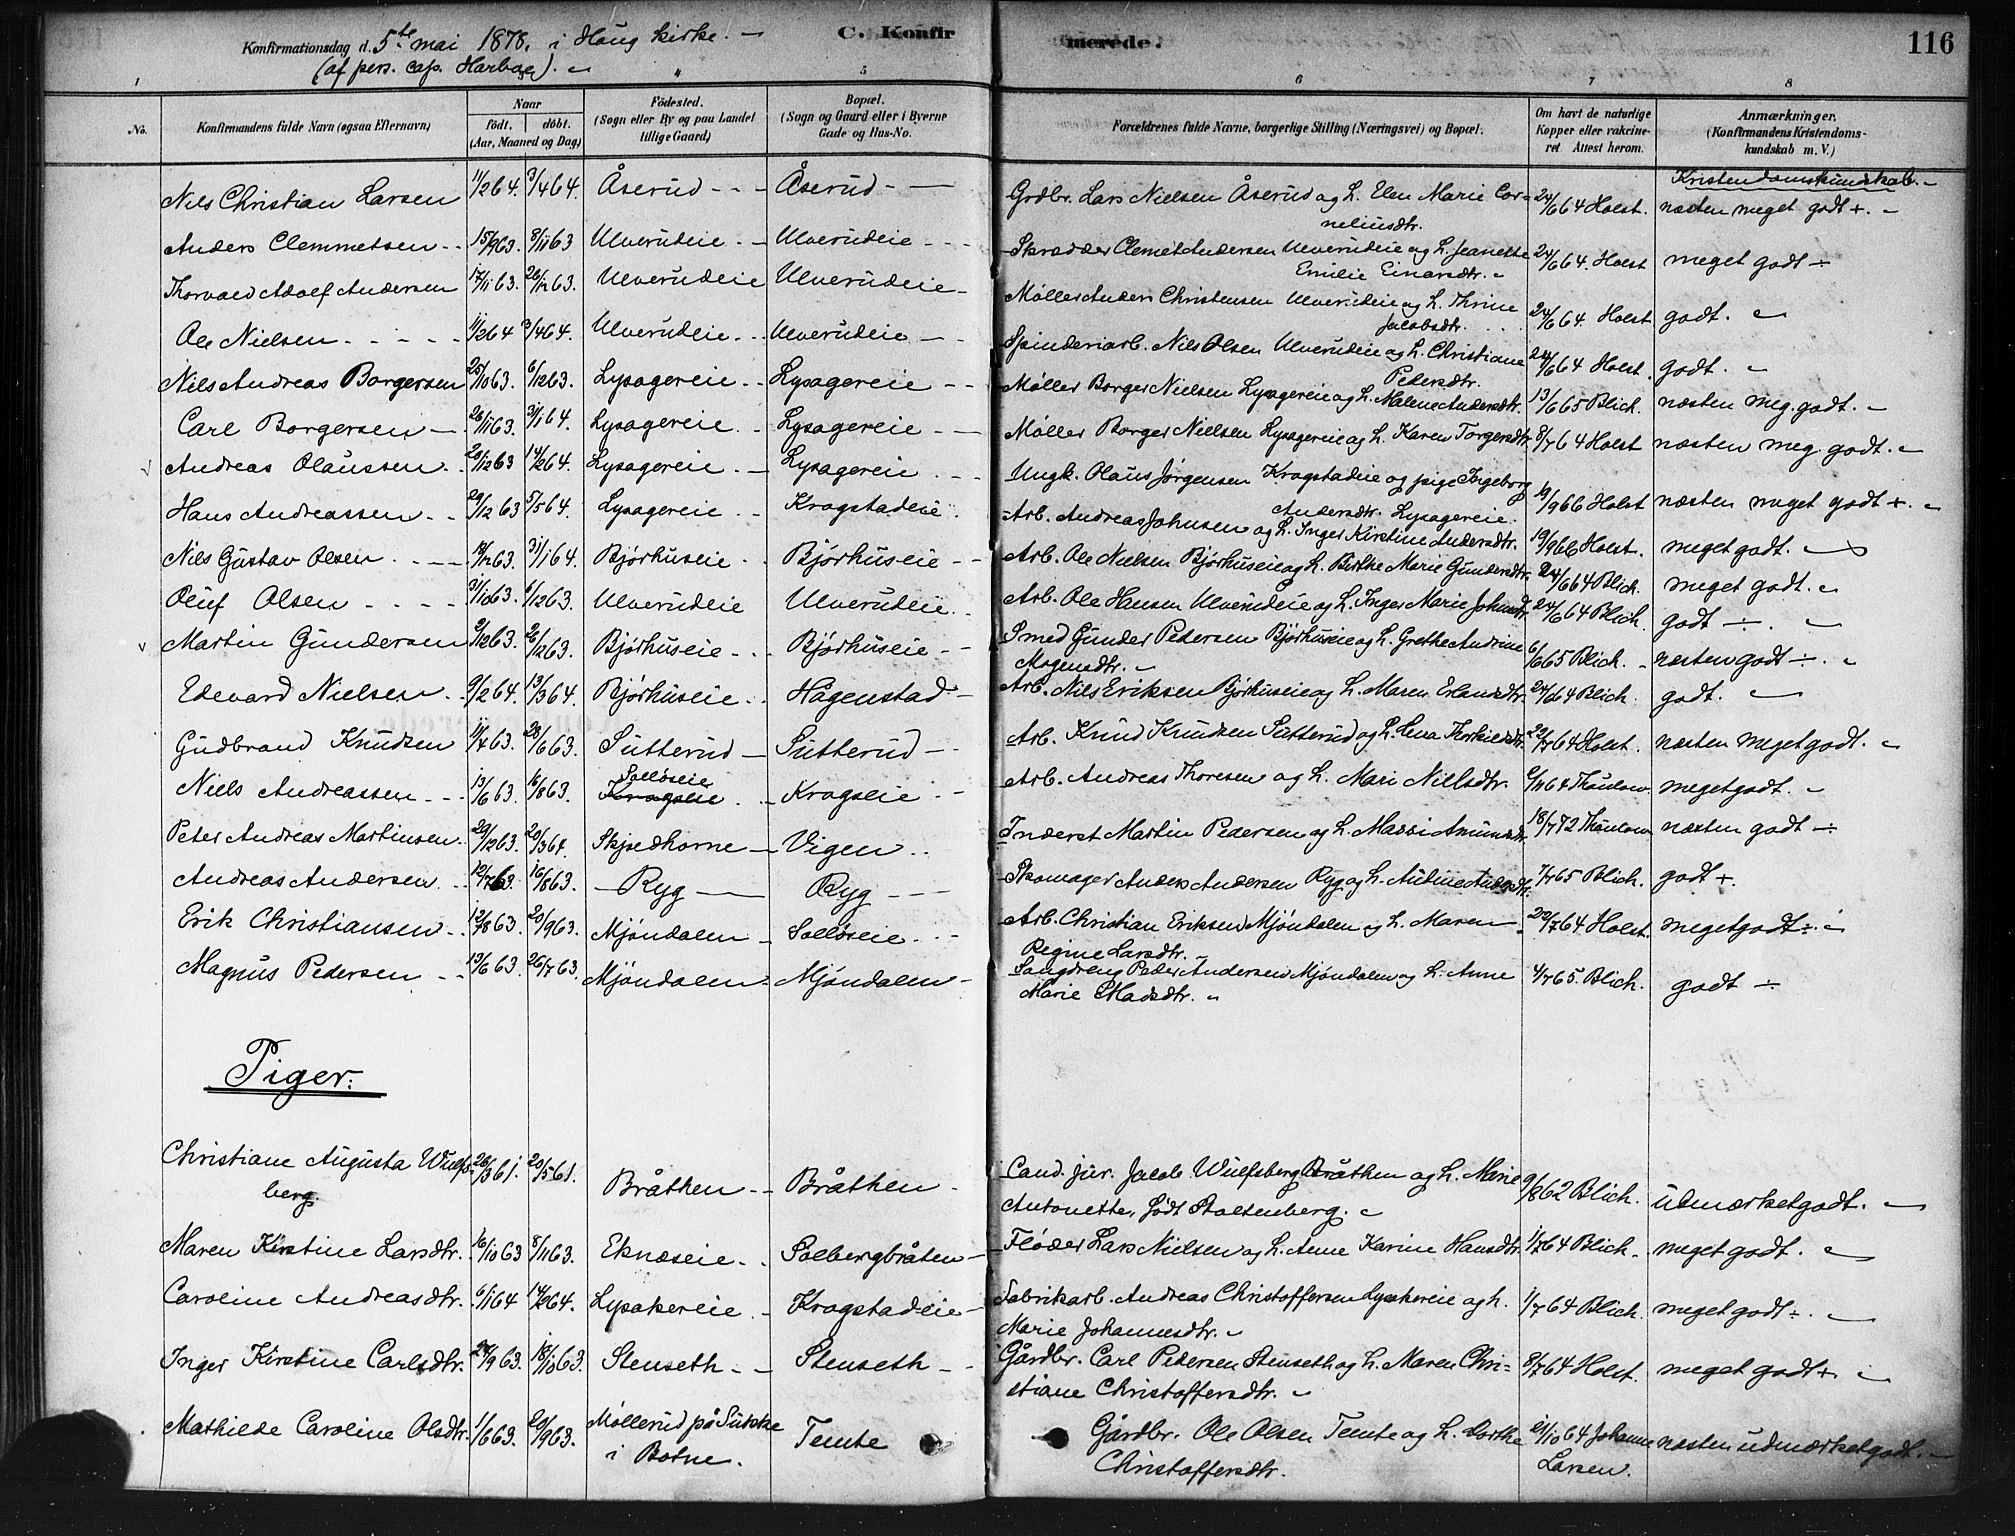 Konfirmationsdag d. 5te mai 1878, i Haug kirke. C. Konfirmerede. 116
(af pers. cap. Harboe).
1 4 5 6 7 8
No. Konfirmandens fulde Navn (ogsaa Efternavn) Naar født. døbt. (Aar, Maaned og Dag) Födested. (Sogn eller By og paa Landet tillige Gaard) Bopæl. (Sogn og Gaard eller i Byerne Gade og Hus-No. Forældrenes fulde Navne, borgerlige Stilling (Næringsvei) og Bopæl. Om havt de naturlige Kopper eller vakcineret. Attest herom. Anmærkninger. (Konfirmandens Kristendomskundskab m. V.)
Kristendomskundskab.
Nils Christian Larsen 11/2 64. 3/4 64. Åserud Åserud Grdbr. Lars Nielsen Åserud og h. Elen Marie Cor= 24/6 64 Holst. næsten meget godt +.
neliusdtr.
Anders Clemmetsen 15/9 63. 8/11 63 Ulverudeie Ulverudeie Skrædder Clemet Andersen Ulverudeie og h. Jeanette 24/6 64. Holst meget godt ÷
Emilie Einarsdtr.
Thorvald Adolf Andersen 17/11 63. 26/12 63. Ulverudeie Ulverudeie Møller Anders Christensen Ulverudeie og h. Thrine 24/6 64. Holst godt.
Jacobsdtr.
Ole Nielsen 11/2 64 3/4 64. Ulverudeie Ulverudeie Spinderiarb. Nils Olsen Ulverudeie og h. Christiane 24/6 64 Holst. godt.
Pedersdtr.
Nils Andreas Borgersen 25/10 63. 6/12 63. Lysagereie Lysagereie Møller Borger Nielsen Lysagereie og h. Malene Andersdtr. 13/6 65 Blich. næsten meg. godt.
Carl Borgersen 26/11 63. 31/1 64. Lysagereie Lysagereie Møller Borger Nielsen Lysagereie og h. Karen Torgersdtr. 8/7 64 Holst næsten meg. godt.
Andreas Olaussen 20/12 63 14/2 64. Lysagereie Lysagereie Ungk. Olaus Jørgensen Kragstadeie og pige Ingeborg
Andersdtr. Lysagereie. 19/9 66 Holst næsten meget godt +.
Hans Andreassen 29/12 63 5/5 64. Lysagereie Kragstadeie Arb. Andreas Johnsen og h. Inger Kirstine Andersdtr. 19/9 66 Holst. meget godt.
Nils Gustav Olsen 31/1 64. Bjørhuseie Bjørhuseie Arb. Ole Nielsen Bjørhuseie og h. Birthe Marie Gundersdtr. 24/6 64 Blich. meget godt.
Oluf Olsen 31/10 63. 6/12 63. Ulverudeie Ulverudeie Arb. Ole Hansen Ulverudeie og h. Inger Marie Johnsdtr. 24/6 64 Blich. godt ÷.
Martin Gundersen 2/12 63. 26/12 63. Bjørhuseie Bjørhuseie Smed Gunder Pedersen Bjørhuseie og h. Grethe Andrine 6/6 65 Blich. næsten godt ÷.
Mogensdtr.
Edevard Nielsen 9/2 64. 13/3 64. Bjørhuseie Hagenstad Arb. Nils Eriksen Bjørhuseie og h. Maren Erlandsdtr. 24/6 64 Blich. godt.
Gudbrand Knudsen 11/4 63. 28/6 63. Sutterud Sutterud Arb. Knud Knudsen Sutterud og h. Lena Thorkildsdtr. 22/7 64 Holst. næsten meget godt.
Solløseie
Niels Andreassen 13/6 63. 16/8 63. Kragseie Kragseie Arb. Andreas Thoresen og h. Mari Nilsdtr. 64 Thaulow meget godt.
Peter Andreas Martinsen 29/12 63. 20/3 64. Vigen Inderst Martin Pedersen og h. Massi Amundsdtr. 18/7 72 Thaulow næsten godt ÷
Andreas Andersen 12/7 63. 16/8 63. Ryg Ryg Skomager Anders Andersen Ryg og h. Andine Andersdtr. 7/7 65 Blich. godt +.
Erik Christiansen 12/8 63. 20/9 63. Mjöndalen Solløseie Arb. Christian Eriksen Mjöndalen og h. Maren 22/7 64 Holst. meget godt ÷.
Regine Larsdtr.
Magnus Pedersen 13/6 63. 26/7 63. Mjöndalen Mjöndalen Peder Andersen Mjöndalen og h. Anne 4/7 65. Blich. godt ÷
Marie Madsdtr.
Piger.
Christiane Augusta Wulfs= 26/3 61. 20/5 61. Bråthen Bråthen Cand. jur. Jacob Wulfsberg Bråthen og h. Marie 9/8 62 Blich. udmærket godt.
berg. Antonette, født Stoltenberg.
Maren Kirstine Larsdtr. 16/10 63 8/11 63. Eknæseie Solbergbråten Fløder Lars Nielsen og h. Anne Karine Hansdtr. 1/7 64 Blich. meget godt.
Caroline Andreasdtr. 6/1 64 14/2 64. Lysakereie Kragstadeie Fabrikarb. Andreas Christoffersen Lysakereie og h. 1/7 64 Blich. meget godt ÷.
Marie Johannesdtr.
Inger Kirstine Carlsdtr. 24/9 63. 18/10 63. Stenseth Stenseth Gårdbr. Carl Pedersen Stenseth og h. Maren Chri= 8/7 64 Holst. meget godt +.
stiane Christoffersdtr.
Mathilde Caroline Olsdtr. 1/6 63. 20/9 63. Møllerud på Sukke Temte Gårdbr. Ole Olsen Temte og h. Dorthe 21/10 64 Johanne næsten udmærket godt.
i Botne. Christoffersdtr. Larsen.